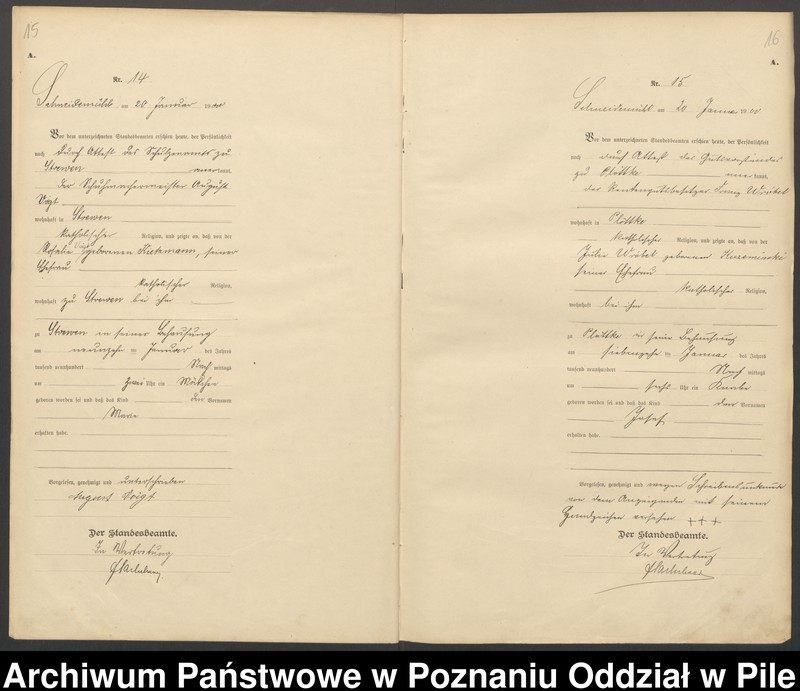 15
A.
Nr. 14
Schneidemühl am 20 Januar 1900
Vor dem unterzeichneten Standesbeamten erschien heute, der Persönlichkeit
nach durch Attest des Schulzenamts zu
Stoewen anerkannt,
der Schuhmachermeister August
Voigt
wohnhaft in Stoewen
katholischer Religion, und zeigte an, daß von der
Rosalie geborenen Kietzmann, seiner
Ehefrau
katholischer Religion,
wohnhaft zu Stoewen bei ihm
zu Stoewen in seiner Behausung
am neunzehn ten Januar des Jahres
tausend neunhundert Nach mittags
um zwei Uhr ein Mädchen
geboren worden sei und daß das Kind den Vornamen
Marie
erhalten habe.
Vorgelesen, genehmigt und unterschrieben
August Voigt
Der Standesbeamte.
In Vertretung
16
A.
Nr. 15
Schneidemühl am 20 Januar 1900
Vor dem unterzeichneten Standesbeamten erschien heute, der Persönlichkeit
nach durch Attest des Gutsvorstandes
zu Plöttke anerkannt,
der Rentengutsbesitzer Franz Wróbel
wohnhaft in Plöttke
katholischer Religion, und zeigte an, daß von der
Julie Wróbel geborenen
seiner Ehefrau
katholischer Religion,
wohnhaft bei ihm
zu Plöttke in seiner Behausung
am siebenzehn ten Januar des Jahres
tausend neunhundert Nach mittags
um sechs Uhr ein Knabe
geboren worden sei und daß das Kind den Vornamen
Josef
erhalten habe.
Vorgelesen, genehmigt und wegen Schreibensunkunde
von dem Anzeigenden mit seinem
Handzeichen versehen +++
Der Standesbeamte.
In Vertretung
Archiwum Państwowe w Poznaniu Oddział w Pile